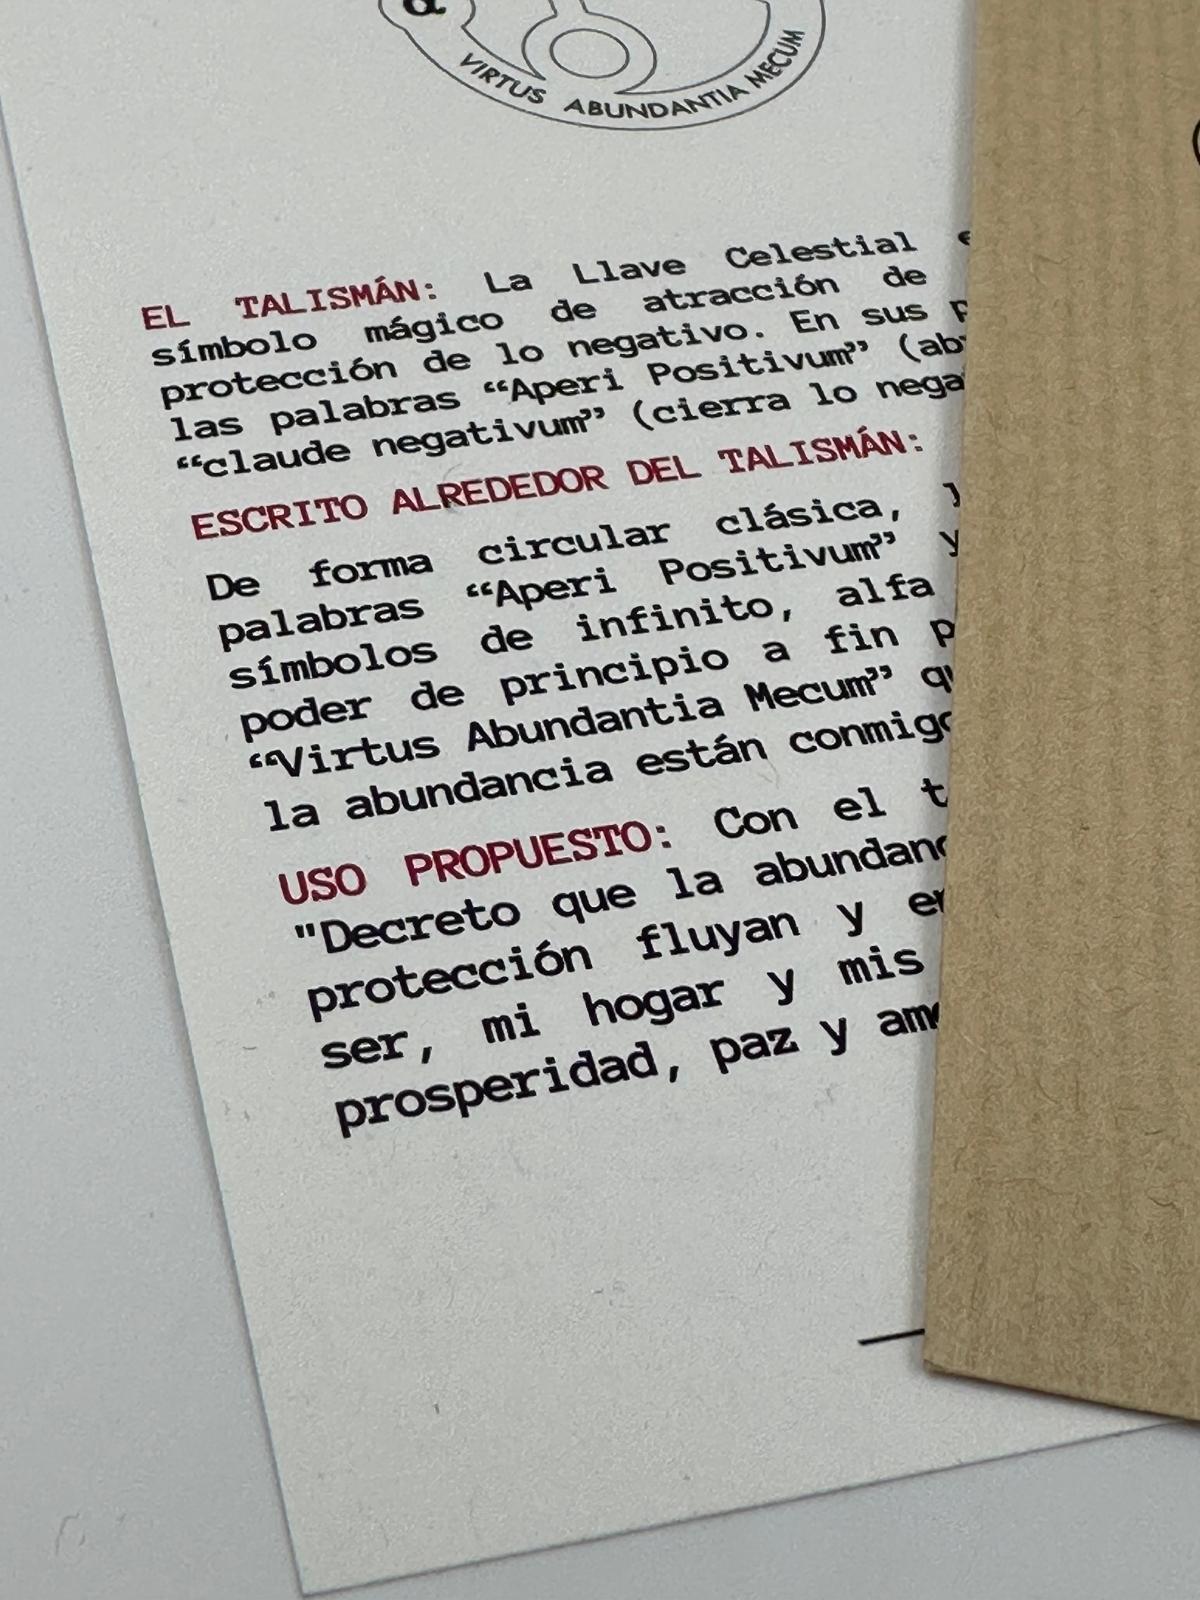 α
VIRTUS ABUNDANTIA MECUM
EL TALISMÁN: La Llave Celestial
símbolo mágico de atracción de
protección de lo negativo. En sus
las palabras “Aperi Positivum” (ab
“claude negativum” (cierra lo nega
ESCRITO ALREDEDOR DEL TALISMÁN:
De forma circular clásica,
palabras “Aperi Positivum” y
símbolos de infinito, alfa
poder de principio a fin p
“Virtus Abundantia Mecum” qu
la abundancia están conmigo
USO PROPUESTO: Con el t
"Decreto que la abundanc
protección fluyan y en
ser, mi hogar y mis
prosperidad, paz y amo